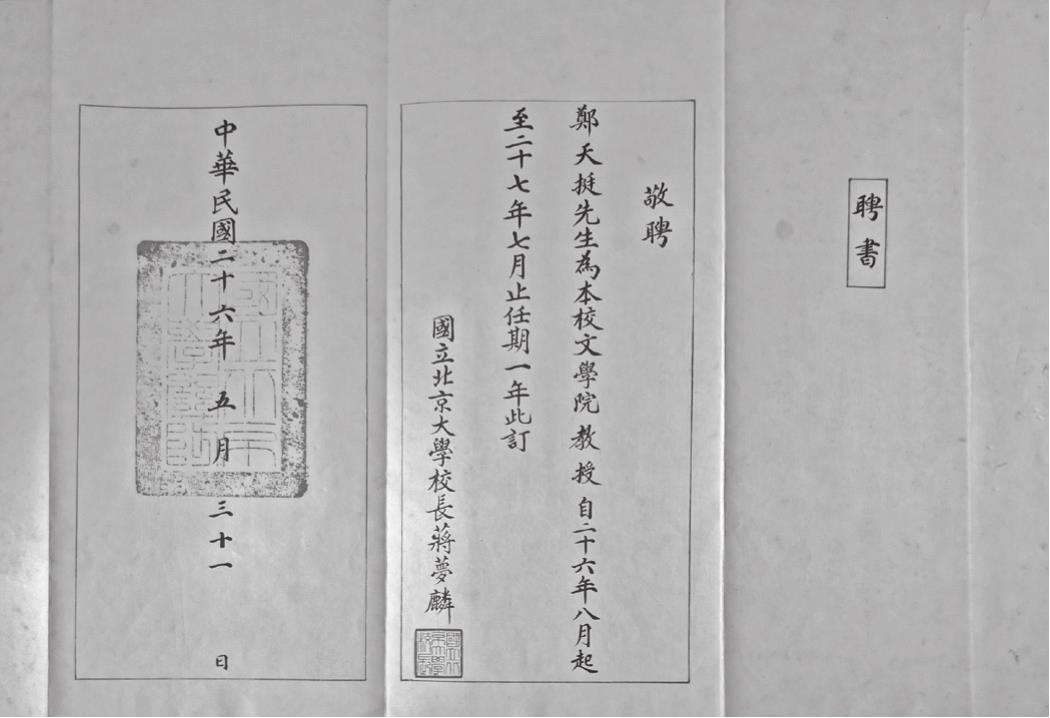 聘書
敬聘
鄭天挺先生為本校文學院教授自二十六年八月起
至二十七年七月止任期一年此訂
國立北京大學校長蔣夢麟
中華民國二十六年五月三十一日